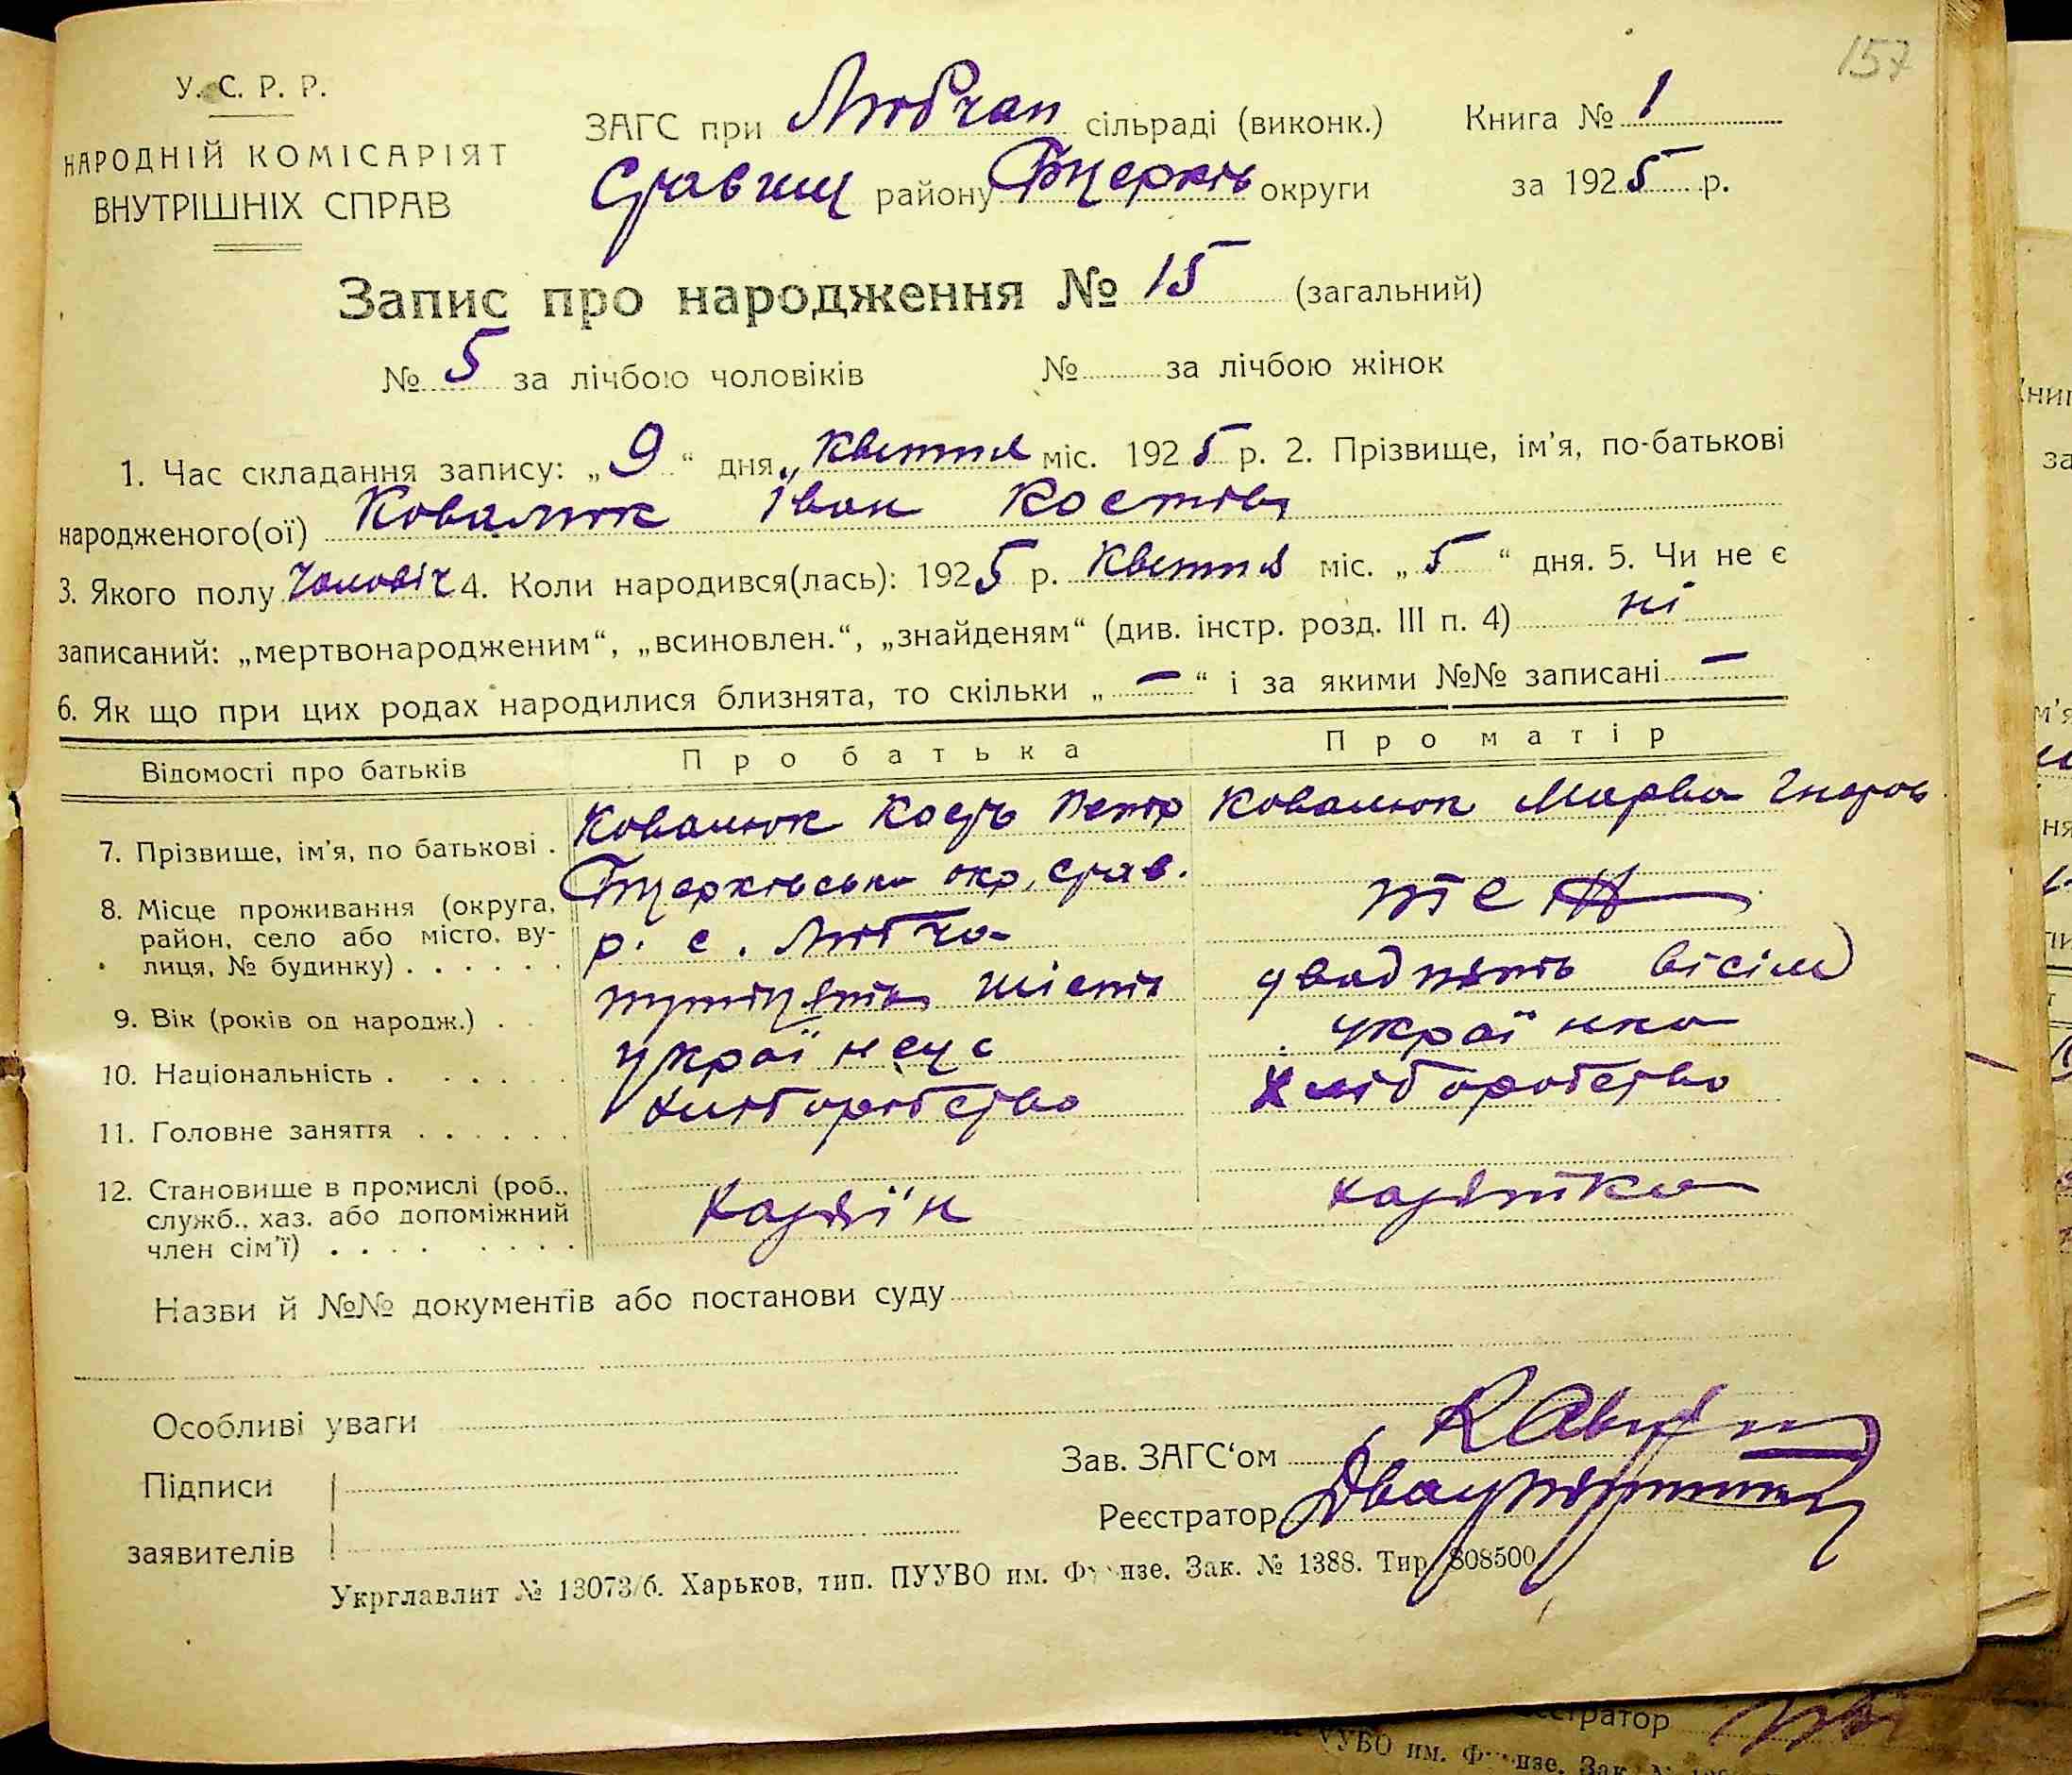 157
У. С. Р. Р.
НАРОДНІЙ КОМІСАРІЯТ
ВНУТРІШНІХ СПРАВ
ЗАГС при Любчан сільраді (виконк.)
Ставищ району Бцерків округи
Книга № 1
за 1925 р.
Запис про народження № 15 (загальний)
№ 5 за лічбою чоловіків № за лічбою жінок
1. Час складання запису: „9“ дня „квітня міс. 1925 р. 2. Прізвище, ім'я, по-батькові
народженого(ої) Ковалюк Іван Костів
3. Якого полу чоловіч 4. Коли народився(лась): 1925 р. квітня міс. „5“ дня. 5. Чи не є
записаний: „мертвонародженим“, „всиновлен.“, „знайденям“ (див. інстр. розд. III п. 4) ні
6. Як що при цих родах народилися близнята, то скільки „—“ і за якими №№ записані —
Відомості про батьків Про батька Про матір
7. Прізвище, ім'я, по батькові . Ковалюк Кость Петр Ковалюк Марва
8. Місце проживання (округа, район, село або місто, вулиця, № будинку) . . . . . .
Бцерківська окр, став.
р. с. Любча
9. Вік (років од народж.) . . трицять шість двадцять вісім
10. Національність . . . . . . українець українка
11. Головне заняття . . . . . . хліборобство хліборобство
12. Становище в промислі (роб., служб., хаз. або допоміжний член сім'ї) . . . . . . . .
хазяїн хазяйка
Назви й №№ документів або постанови суду
Особливі уваги
Зав. ЗАГС‘ом
Підписи
Реєстратор
заявителів
Укрглавлит № 13073/б. Харьков, тип. ПУУВО им. Фрунзе. Зак. № 1388. Тир. 808500
еєстратор
УУВО им. Ф нзе. Зак.